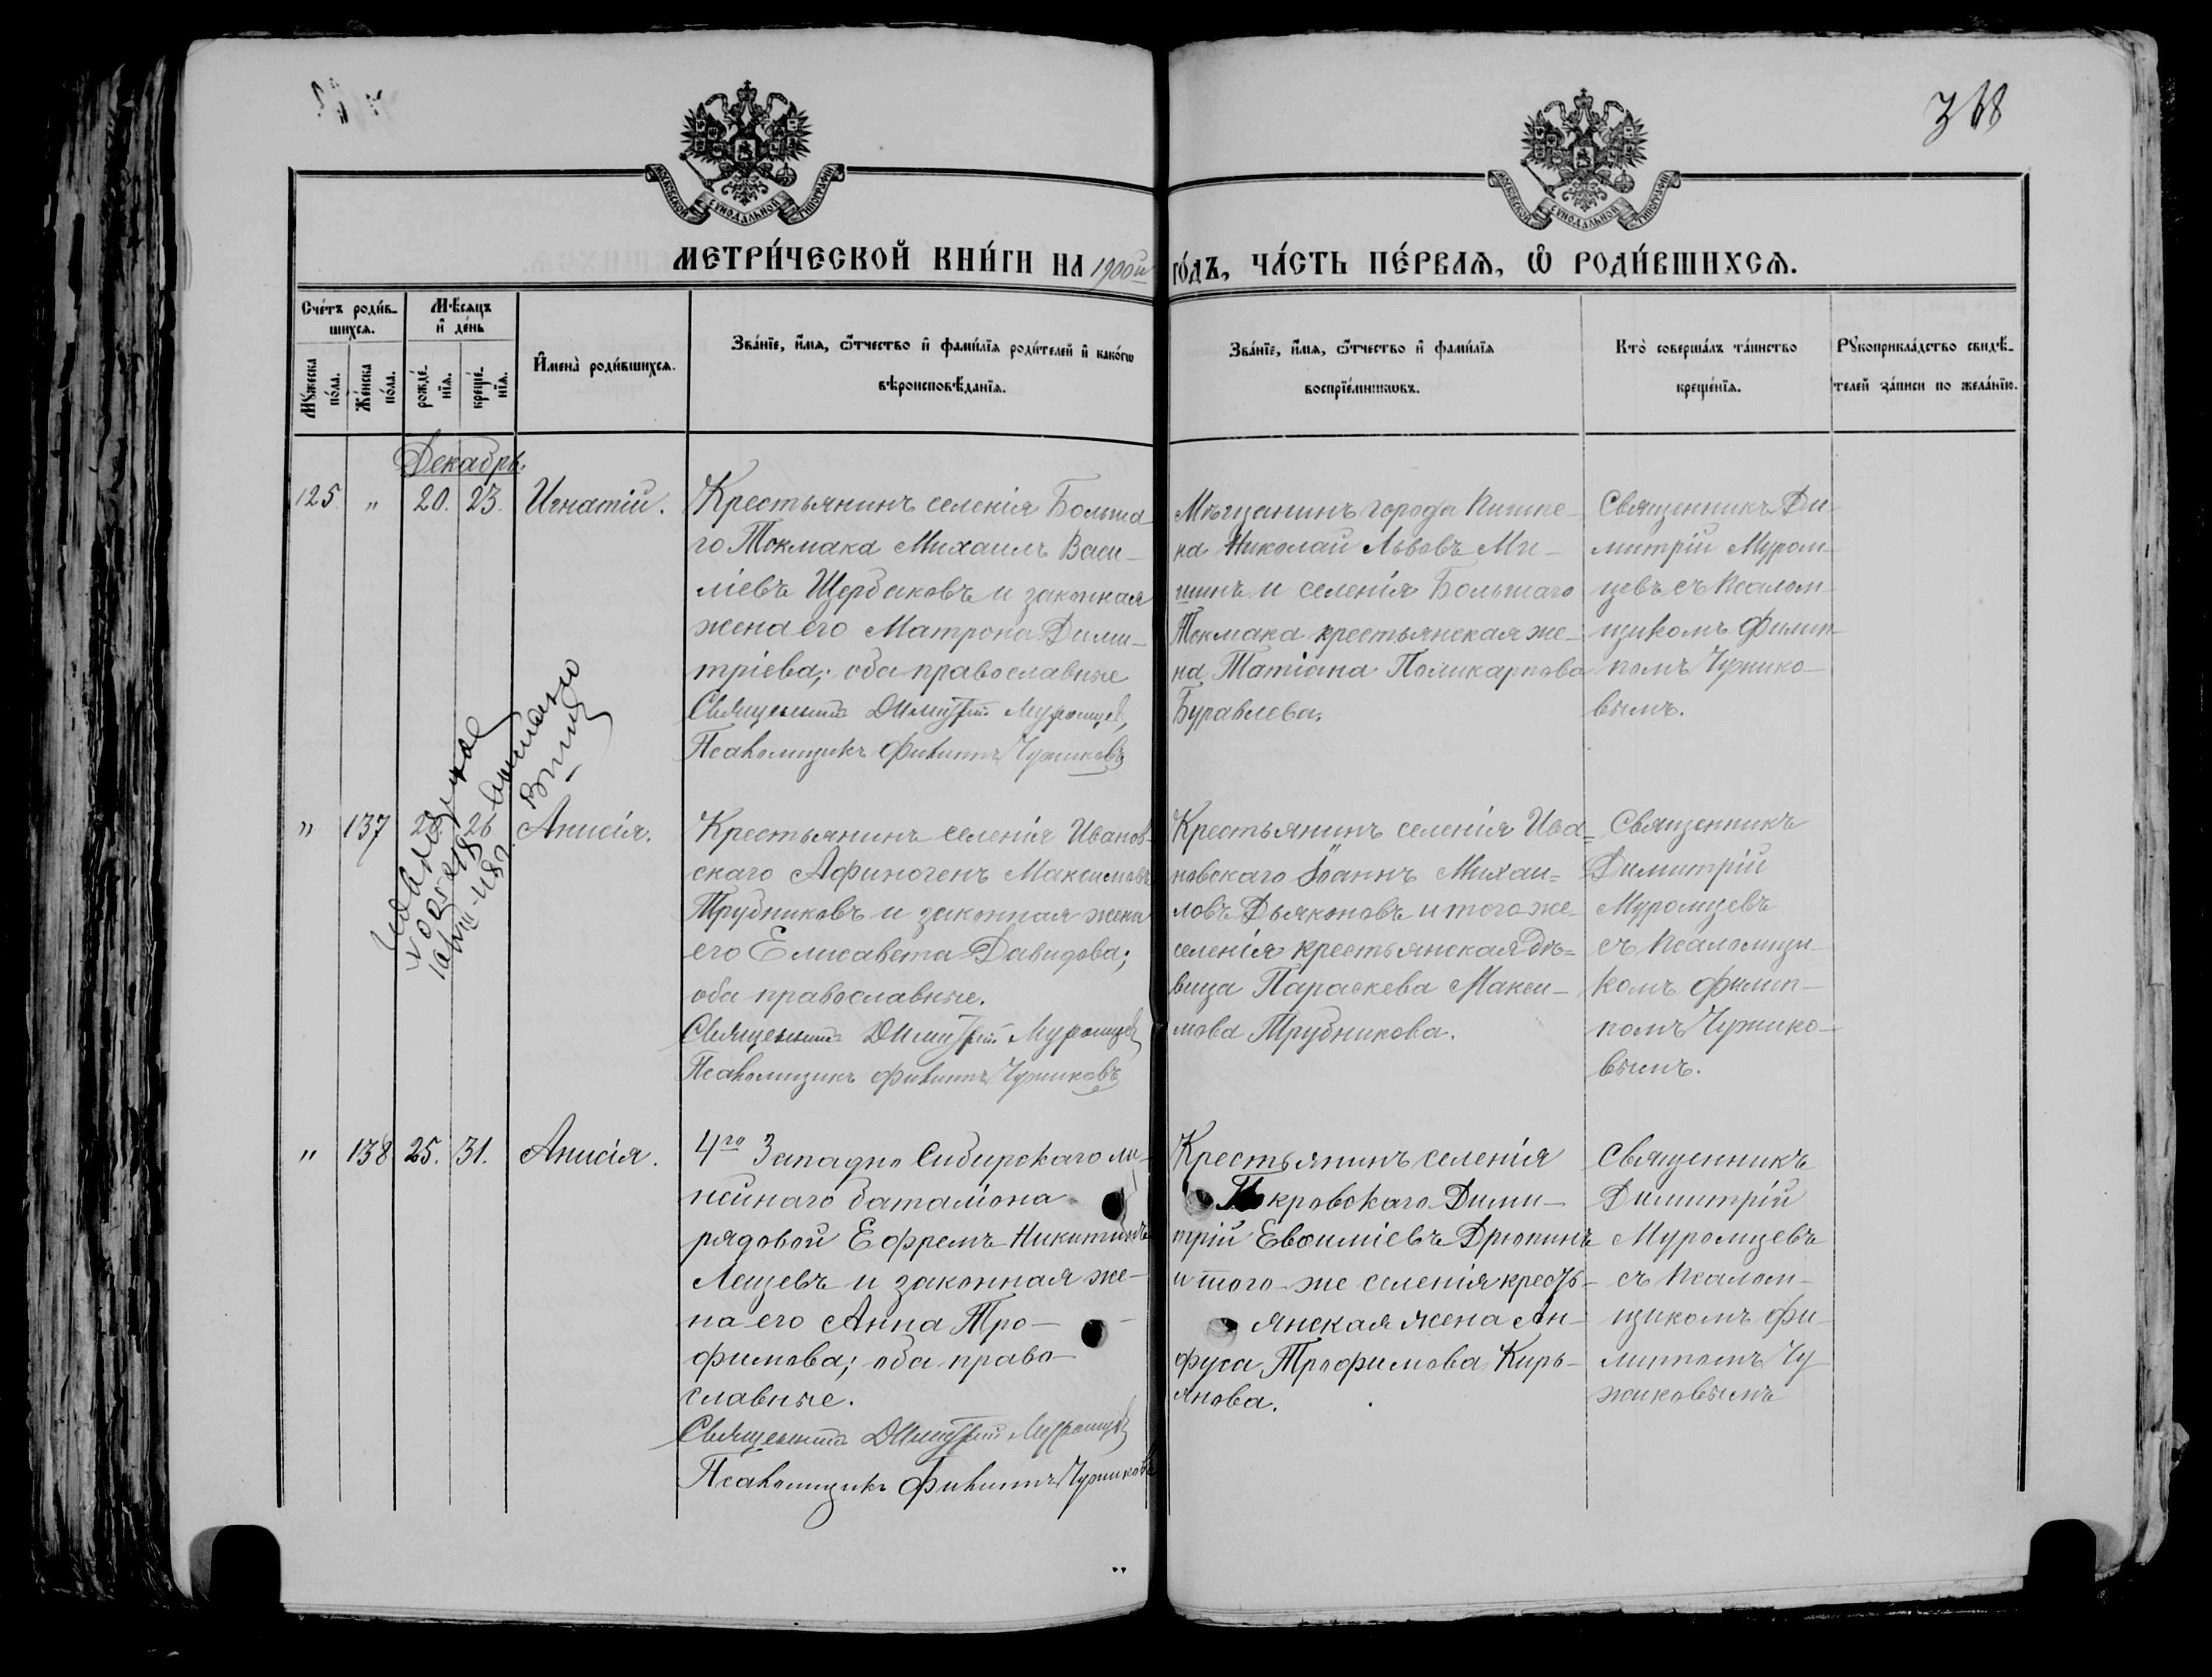 368
МОСКОВСКОЙ СУНОДАЛЬНОЙ ТИПОГРАФІИ
МОСКОВСКОЙ СУНОДАЛЬНОЙ ТИПОГРАФІИ
МЕТРИ́ЧЕСКОЙ КНИ́ГИ НА 1900й го́дъ, ЧА́СТЬ ПЕ́РВАЯ, Ѡ РОДИ́ВШИХСЯ.
Сче́тъ роди́в-
шихся.
Мꙋ́жеска
по́ла.
Же́нска
по́ла.
Мѣ́сяцъ
и҆ де́нь
рожде́-
нїя.
креще́-
нїя.
И҆мена̀ роди́вшихся.
Зва́нїе, и҆́мя, ѻ҆́тчество и҆ фами́лїя роди́телей и҆ како́гѡ
вѣроисповѣ́данїя.
Зва́нїе, и҆́мя, ѻ҆́тчество и҆ фами́лїя
воспрїе́мникѡвъ.
Кто̀ соверша́лъ та́инство
креще́нїя.
Рꙋкоприкла́дство свидѣ́-
телей за́писи по жела́нїю.
Декабрь.
125 " 20. 23. Игнатій.
Крестьянинъ селенія Больша
го Токмака Михаилъ Васи-
ліевъ Щербаковъ и законная
жена его Матрона Дими-
тріева; оба православные
Священникъ Димитрій Муромцевъ
Псаломщикъ Филиппъ Чужиковъ
Мѣщанинъ города Пишпе-
ка Николай Львовъ Ми-
шинъ и селенія Большаго
Токмака крестьянская же-
на Татіана Поликарпова
Буравлева.
Священникъ Ди-
митрій Муром-
цевъ съ Псалом-
щикомъ Филип-
помъ Чужико-
вымъ.
" 137 26 Анисія.
Крестьянинъ селенія Иванов-
скаго Афиногенъ Максимовъ
Трубниковъ и законная жена
его Елисавета Давидова;
оба православные.
Священникъ Димитрій Муромцевъ
Псаломщикъ Филиппъ Чужиковъ
Крестьянинъ селенія Ива=
новскаго Іоаннъ Михаи=
ловъ Дьяконовъ и того же
селенія крестьянская дѣ=
вица Параскева Макси-
мова Трубникова.
Священникъ
Димитрій
Муромцевъ
съ Псаломщи-
комъ Филип-
помъ Чужико-
вымъ.
" 138 25. 31. Анисія.
4го Западно Сибирскаго ли-
нейнаго баталіона
рядовой Ефремъ Никитинъ
Лещевъ и законная же-
на его Анна Тро-
фимова; оба право-
славные.
Священникъ Димитрій Муромцевъ
Псаломщикъ Филиппъ Чужиковъ
Крестьянинъ селенія
Покровскаго Дими-
трій Евѳиміевъ Дрюпинъ
и того-же селенія кресть-
янская жена Ан-
фуса Трофимова Кирь-
янова.
Священникъ
Димитрій
Муромцевъ
съ Псалом-
щикомъ Фи-
липпомъ Чу
жиковымъ